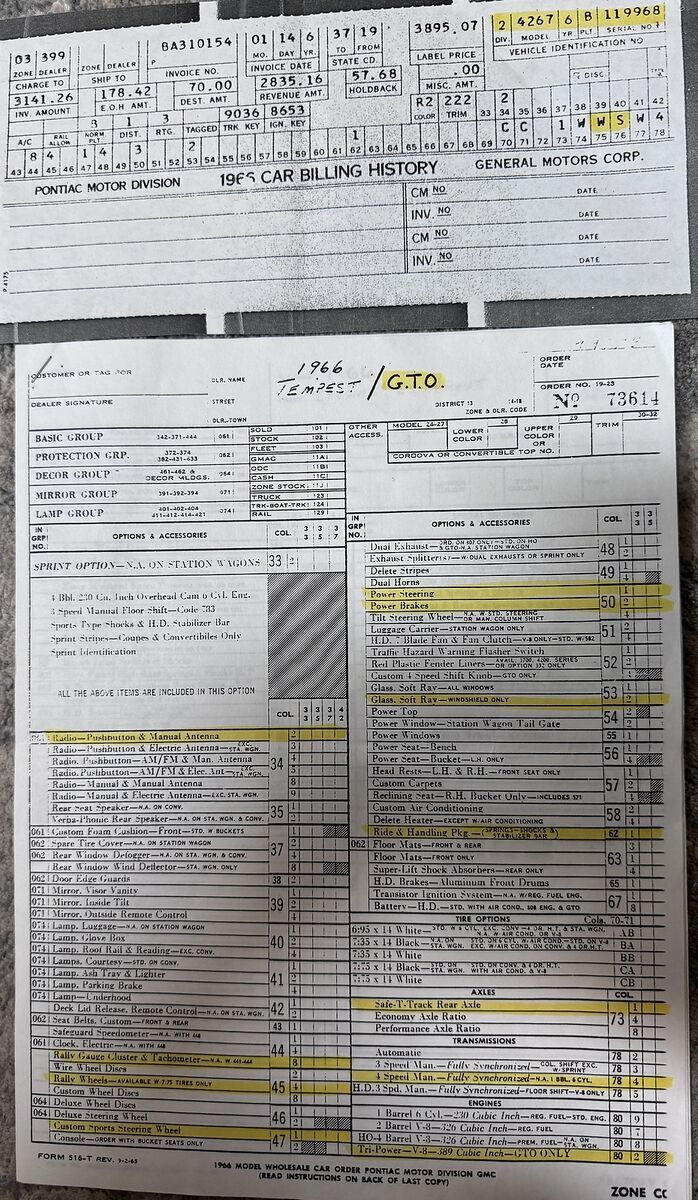 03 399
ZONE DEALER
CHARGE TO
ZONE DEALER
SHIP TO
BA310154
INVOICE NO.
01 14 6
MO. DAY YR.
INVOICE DATE
37 19
TO FROM
STATE CD.
3895.07
LABEL PRICE
2 4267 6 B 119968
DIV. MODEL YR PLT SERIAL NO
VEHICLE IDENTIFICATION NO
3141.26
INV AMOUNT
178.42
E.O.H AMT.
70.00
DEST. AMT.
2835.16
REVENUE AMT.
57.68
HOLDBACK
.00
MISC. AMT.
DISC
A/C RAIL ALLOW NORM PLT DIST. RTG. TAGGED TRK KEY IGN. KEY
8 1 3 9036 8653
R2 222
COLOR TRIM
33 34 35 36 37 38 39 40 41 42
2
8 4 1 4 3 2 1 C C 1 W W S W 4
43 44 45 46 47 48 49 50 51 52 53 54 55 56 57 58 59 60 61 62 63 64 65 66 67 68 69 70 71 72 73 74 75 76 77 78
PONTIAC MOTOR DIVISION 1966 CAR BILLING HISTORY GENERAL MOTORS CORP.
CM NO DATE
INV. NO DATE
CM NO DATE
INV. NO DATE
P 4175
CUSTOMER OR TAG FOR
DLR. NAME
1966
TEMPEST / G.T.O.
ORDER DATE
DEALER SIGNATURE
STREET
DLR.-TOWN
DISTRICT 13 14-18
ZONE & DLR. CODE
ORDER NO. 19-23
No 73614
BASIC GROUP 342-371-444 061
PROTECTION GRP. 372-374 382-431-633 062
DECOR GROUP 461-462 & DECOR MLDGS. 064
MIRROR GROUP 391-392-394 071
LAMP GROUP 401-402-404 411-412-414-421 074
SOLD 101
STOCK 102
FLEET 103
GMAC 11A
ODC 11B
CASH 11C
ZONE STOCK
TRUCK 123
TRK-BOAT-TRK 124
RAIL 129
OTHER ACCESS.
MODEL 24-27
LOWER COLOR 28
UPPER COLOR OR 29
TRIM 30-32
CORDOVA OR CONVERTIBLE TOP NO.
IN GRP. NO. OPTIONS & ACCESSORIES COL.
SPRINT OPTION—N.A. ON STATION WAGONS 33
1 Bbl. 230 Cu. Inch Overhead Cam 6 Cyl. Eng.
3 Speed Manual Floor Shift—Code 783
Sports Type Shocks & H.D. Stabilizer Bar
Sprint Stripes—Coupes & Convertibles Only
Sprint Identification
ALL THE ABOVE ITEMS ARE INCLUDED IN THIS OPTION
COL.
Radio—Pushbutton & Manual Antenna
Radio—Pushbutton & Electric Antenna—EXC. STA. WGN.
Radio, Pushbutton—AM/FM & Man. Antenna
Radio, Pushbutton—AM/FM & Elec. Ant—EXC. STA. WGN.
34
Radio—Manual & Manual Antenna
Radio—Manual & Electric Antenna—EXC. STA. WGN.
Rear Seat Speaker—N.A. ON CONV.
Verba-Phonic Rear Speaker—N.A. ON CONV.
35
061 Custom Foam Cushion—Front—STD. W BUCKETS
062 Spare Tire Cover—N.A. ON STATION WAGON
062 Rear Window Defogger—N.A. ON STA. WGN. & CONV.
37
Rear Window Wind Deflector—STA. WGN. ONLY
062 Door Edge Guards 38
071 Mirror, Visor Vanity
071 Mirror, Inside Tilt
071 Mirror, Outside Remote Control
39
074 Lamp, Luggage—N.A. ON STATION WAGON
074 Lamp, Glove Box
074 Lamp, Roof Rail & Reading—EXC. CONV.
40
074 Lamps, Courtesy—STD. ON CONV.
074 Lamp, Ash Tray & Lighter
074 Lamp, Parking Brake
41
074 Lamp—Underhood
Deck Lid Release, Remote Control—N.A. ON STA. WGN. 42
062 Seat Belts, Custom—FRONT & REAR 43
Safeguard Speedometer—N.A. WITH 448
061 Clock, Electric—N.A. WITH 448
44
Rally Gauge Cluster & Tachometer—N.A. W 441-444
Wire Wheel Discs
Rally Wheels—AVAILABLE W 7:75 TIRES ONLY
45
Custom Wheel Discs
064 Deluxe Wheel Discs
064 Deluxe Steering Wheel
46
Custom Sports Steering Wheel
Console—ORDER WITH BUCKET SEATS ONLY
47
IN GRP. NO. OPTIONS & ACCESSORIES COL.
Dual Exhaust—ORD. ON 807 ONLY—STD. ON HO & GTO-N.A. STATION WAGON
Exhaust Splitter(s)—W DUAL EXHAUSTS OR SPRINT ONLY
48
Delete Stripes
Dual Horns
49
Power Steering
Power Brakes
50
Tilt Steering Wheel—N.A. W STD. STEERING OR MAN. COLUMN SHIFT
Luggage Carrier—STATION WAGON ONLY
51
H.D. 7 Blade Fan & Fan Clutch—V-8 ONLY—STD. W/582
Traffic Hazard Warning Flasher Switch
Red Plastic Fender Liners—AVAIL. 3700, 4200, SERIES OR OPTION 332 ONLY
52
Custom 4 Speed Shift Knob—GTO ONLY
Glass, Soft Ray—ALL WINDOWS
Glass, Soft Ray—WINDSHIELD ONLY
53
Power Top
Power Window—Station Wagon Tail Gate
54
Power Windows 55
Power Seat—Bench
Power Seat—Bucket—L.H. ONLY
56
Head Rests—L.H. & R.H.—FRONT SEAT ONLY
Custom Carpets
57
Reclining Seat—R.H. Bucket Only—INCLUDES 571
Custom Air Conditioning
Delete Heater—EXCEPT W/AIR CONDITIONING
58
Ride & Handling Pkg.—(SPRINGS—SHOCKS & STABILIZER BAR) 62
062 Floor Mats—FRONT & REAR
Floor Mats—FRONT ONLY
63
Super-Lift Shock Absorbers—REAR ONLY
H.D. Brakes—Aluminum Front Drums 65
Transistor Ignition System—N.A. W/REG. FUEL ENG.
Battery—H.D.—STD. WITH AIR COND. 808 ENG. & GTO
67
TIRE OPTIONS Cols. 70-71
6:95 x 14 White AB
7:35 x 14 Black BA
7:35 x 14 White BB
7:75 x 14 Black CA
7:75 x 14 White CB
AXLES COL.
Safe-T-Track Rear Axle
Economy Axle Ratio
Performance Axle Ratio
73
TRANSMISSIONS
Automatic 78 2
3 Speed Man.—Fully Synchronized—COL. SHIFT EXC. W/SPRINT 78 3
4 Speed Man.—Fully Synchronized—N.A. 1 BBL. 6 CYL. 78 4
H.D. 3 Spd. Man.—Fully Synchronized—FLOOR SHIFT—V-8 ONLY 78 5
ENGINES
1 Barrel 6 Cyl.—230 Cubic Inch—REG. FUEL-STD. ENG. 80 9
2 Barrel V-8—326 Cubic Inch—REG. FUEL 80 7
HO-4 Barrel V-8—326 Cubic Inch—PREM. FUEL—N.A. ON STA. WAGON 80
Tri-Power—V-8—389 Cubic Inch—GTO ONLY 80 2
FORM 516-T REV. 9-2-65
1966 MODEL WHOLESALE CAR ORDER PONTIAC MOTOR DIVISION GMC
(READ INSTRUCTIONS ON BACK OF LAST COPY)
ZONE CO